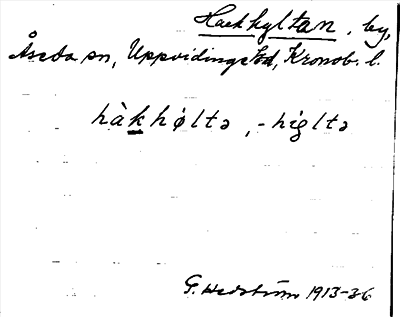 Hackhyltan, by,
Åseda sn, Uppvidinge hd, Kronob. l.
hàkhøltə, -higltə
G. Hedström 1913-36